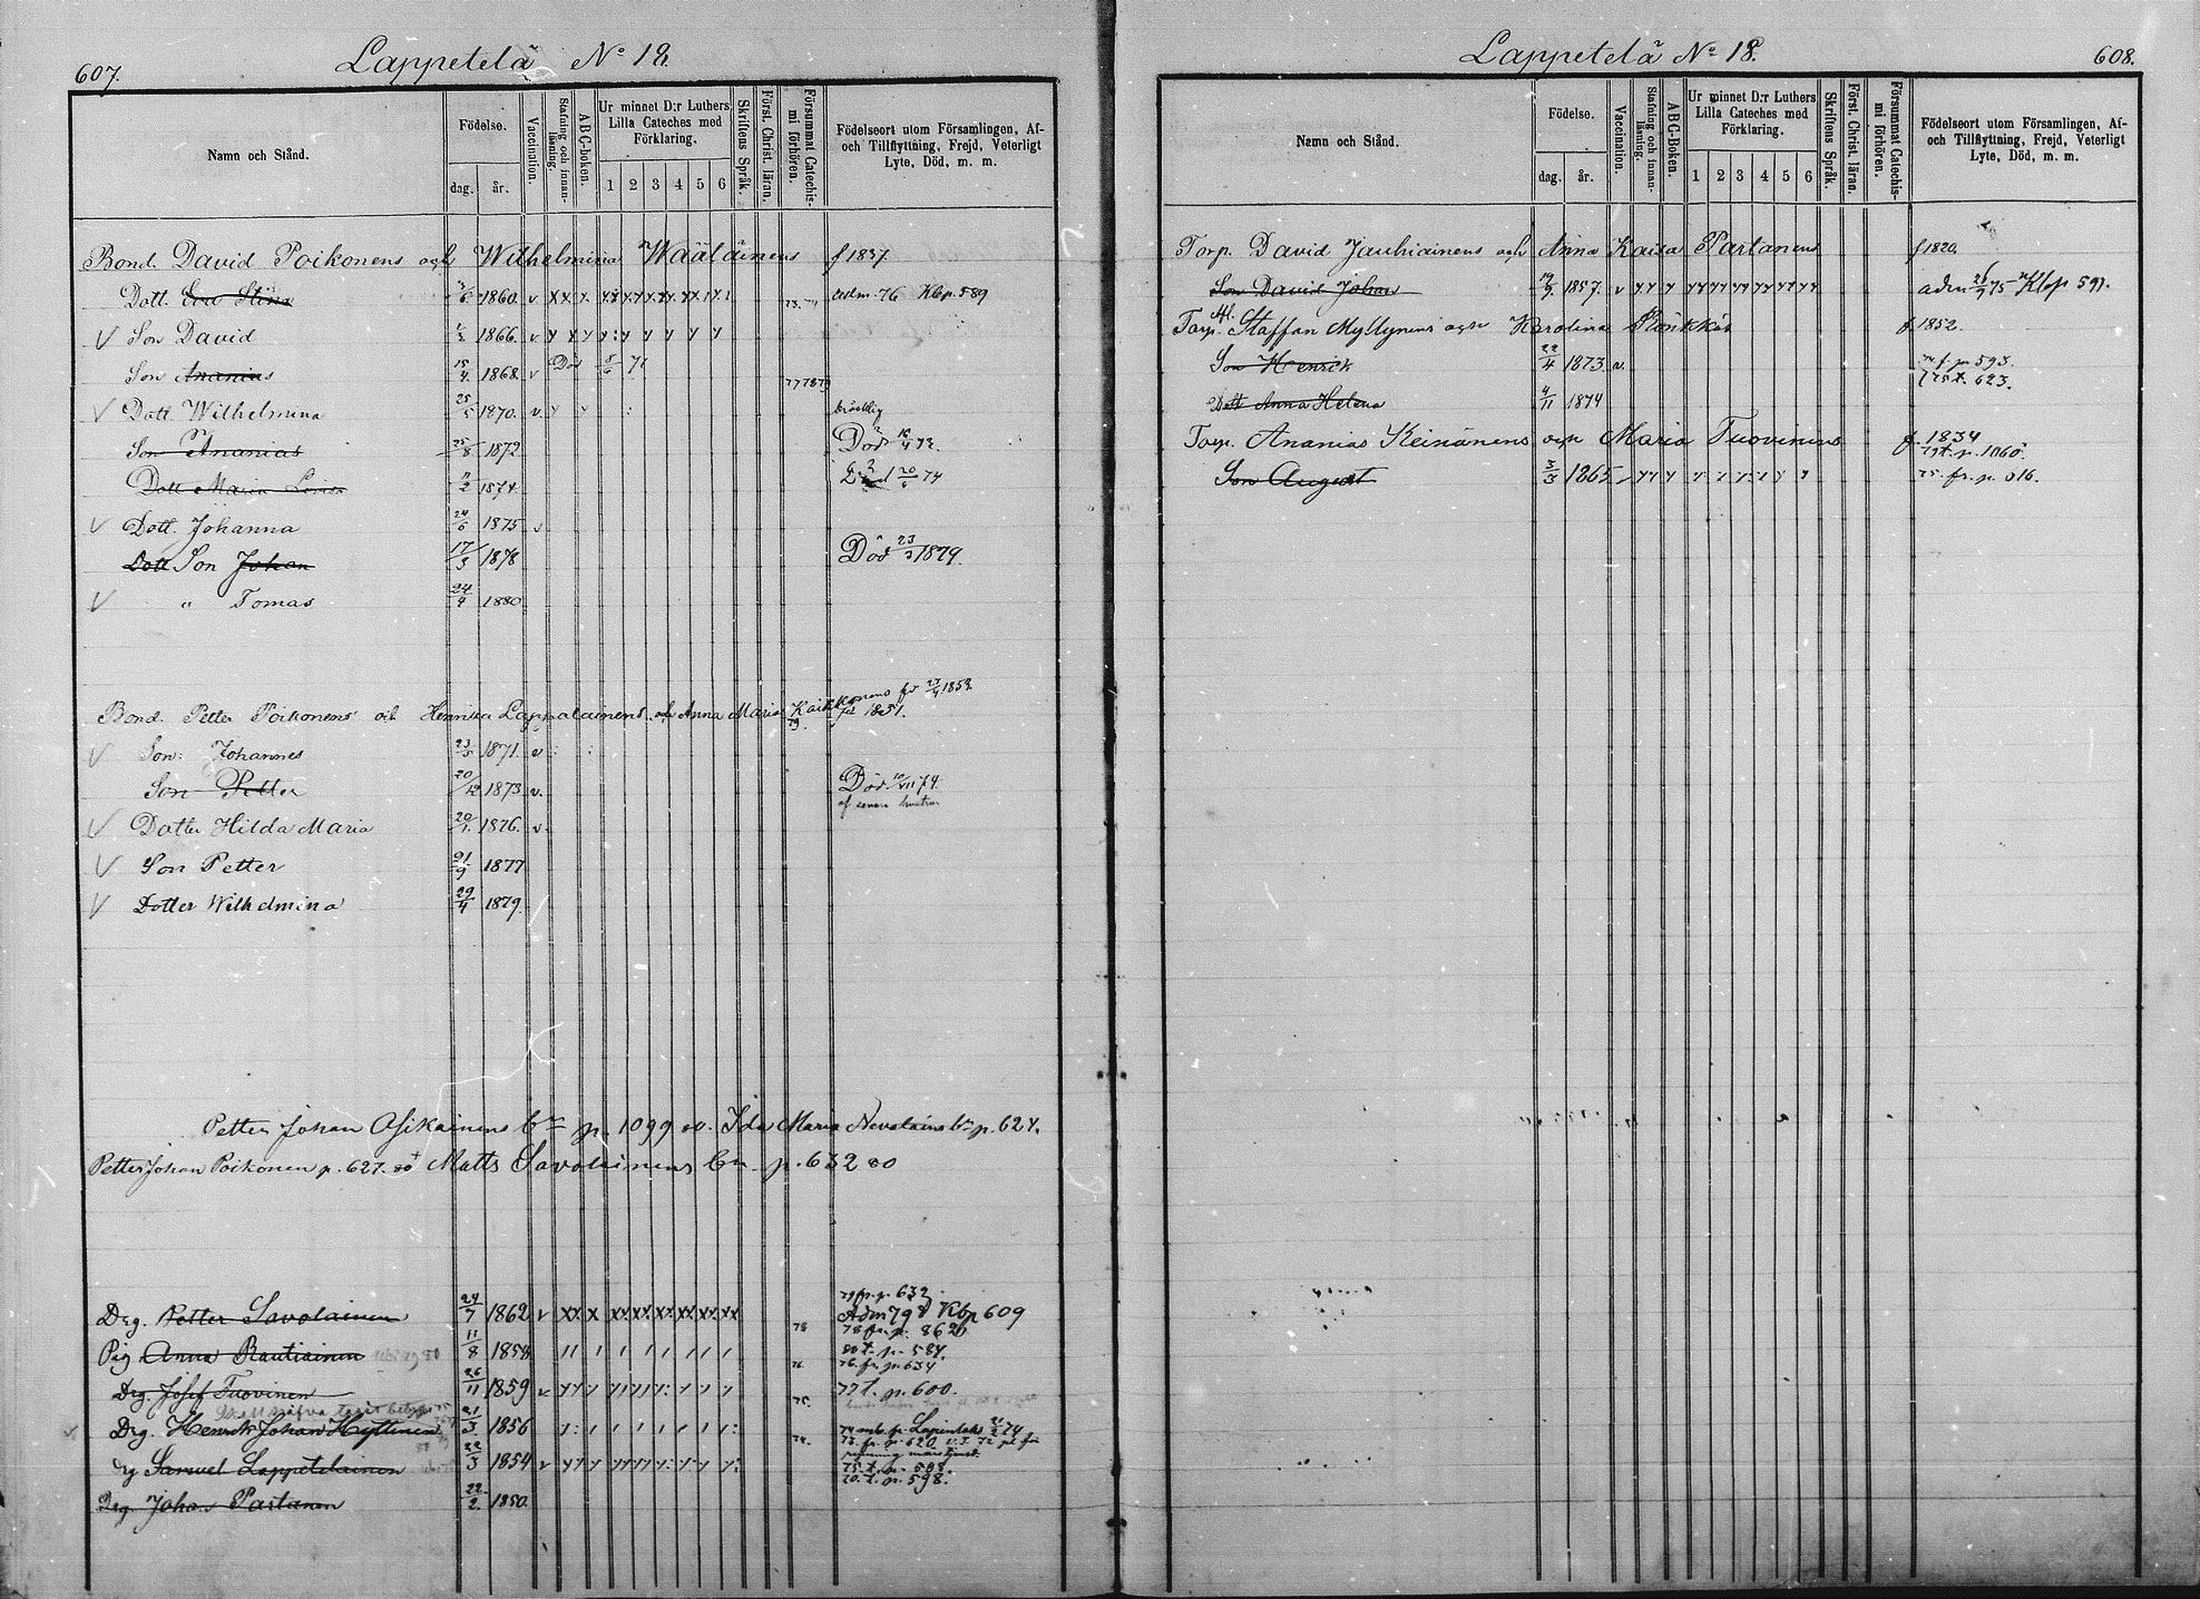 607.
Lappetelä No 18.
Namn och Stånd.
Födelse.
dag. år.
Vaccination.
Stafning och innan-läsning.
ABC-boken.
Ur minnet D:r Luthers Lilla Cateches med Förklaring.
1 2 3 4 5 6
Skriftens Språk.
Först. Christ. läran.
Försummat Catechis-mi förhören.
Födelseort utom Församlingen, Af-
och Tillflyttning, Frejd, Veterligt
Lyte, Död, m. m.
Bond. David Poikonens och Wilhelmina Wäälänens f 1837
Dott. Eva Stina 1860 v adm. 76 Kbp. 589
V Son David 1866 v
Son Ananias 15/4 1868 v Död 71 77 78 79
V Dott Wilhelmina 25/5 1870 v bräcklig
Son Ananias 25/8 1872 Död
Dott Maria 1874 20/6 74
V Dott. Johanna 24/6 1875 v
Dott Son Johan 17/3 1878 Död 23/3 1879.
V " Tomas 24/4 1880
Bond. Petter Poikonens och Henrika Lappalainens och Anna Maria 1851.
V Son: Johannes 23/5 1871 v
Son Petter 20/12 1873 v. Död 74.
af senare hustrun
V Dotter Hilda Maria 20/1 1876. v.
V Son Petter 21/9 1877
V Dotter Wilhelmina 29/4 1879.
Petter Johan Asikainens bn p. 1099 80. Ida Maria Nevalains bn p. 624.
Petter Johan Poikonen p. 627. 80 Matts Savolainens bn. p. 632 80
79 fr. p. 632.
Drg. Petter Savolainen 24/7 1862 v Adm 79 Kbp 609
78 78 fr. p. 862
Pig Anna Rautiainen 11/8 1858 80 t. p. 584.
76. 76. fr. p. 634.
Drg. Josef Tuovinen 26/11 1859 v 77 t. p. 600.
75.
Drg. Henrik Johan Hyttinen 21/3 1856 74 mb. fr. Lapinlaks 74
74. 73. fr. p. 620
drg Samuel Lappeteläinen 22/3 1854 v 75. t. p. 588.
70. t. p. 598.
Drg. Johan Partanen 22/2. 1850.
608.
Lappetelä No 18.
Namn och Stånd.
Födelse.
dag. år.
Vaccination.
Stafning och innan-läsning.
ABC-Boken.
Ur minnet D:r Luthers Lilla Cateches med Förklaring.
1 2 3 4 5 6
Skriftens Språk.
Först. Christ. läran.
Försummat Catechis-mi förhören.
Födelseort utom Församlingen, Af-
och Tillflyttning, Frejd, Veterligt
Lyte, Död, m. m.
Torp. David Jauhiainens och Anna Kaisa Partanens f 1820.
Son David Johan 19/9. 1857. v adm 75 Kbp 591.
Torp. Staffan Myllynens och Karolina Rönkkös f. 1852.
Son Henrick 22/4 1873 v. 74. f. p. 593.
75 t. 623.
Dott Anna Helena 4/11 1874
Torp. Ananias Keinänens och Maria Tuovinens f. 1834
79 t. p. 1060.
Son August 3/3 1865 75. fr. p. 616.